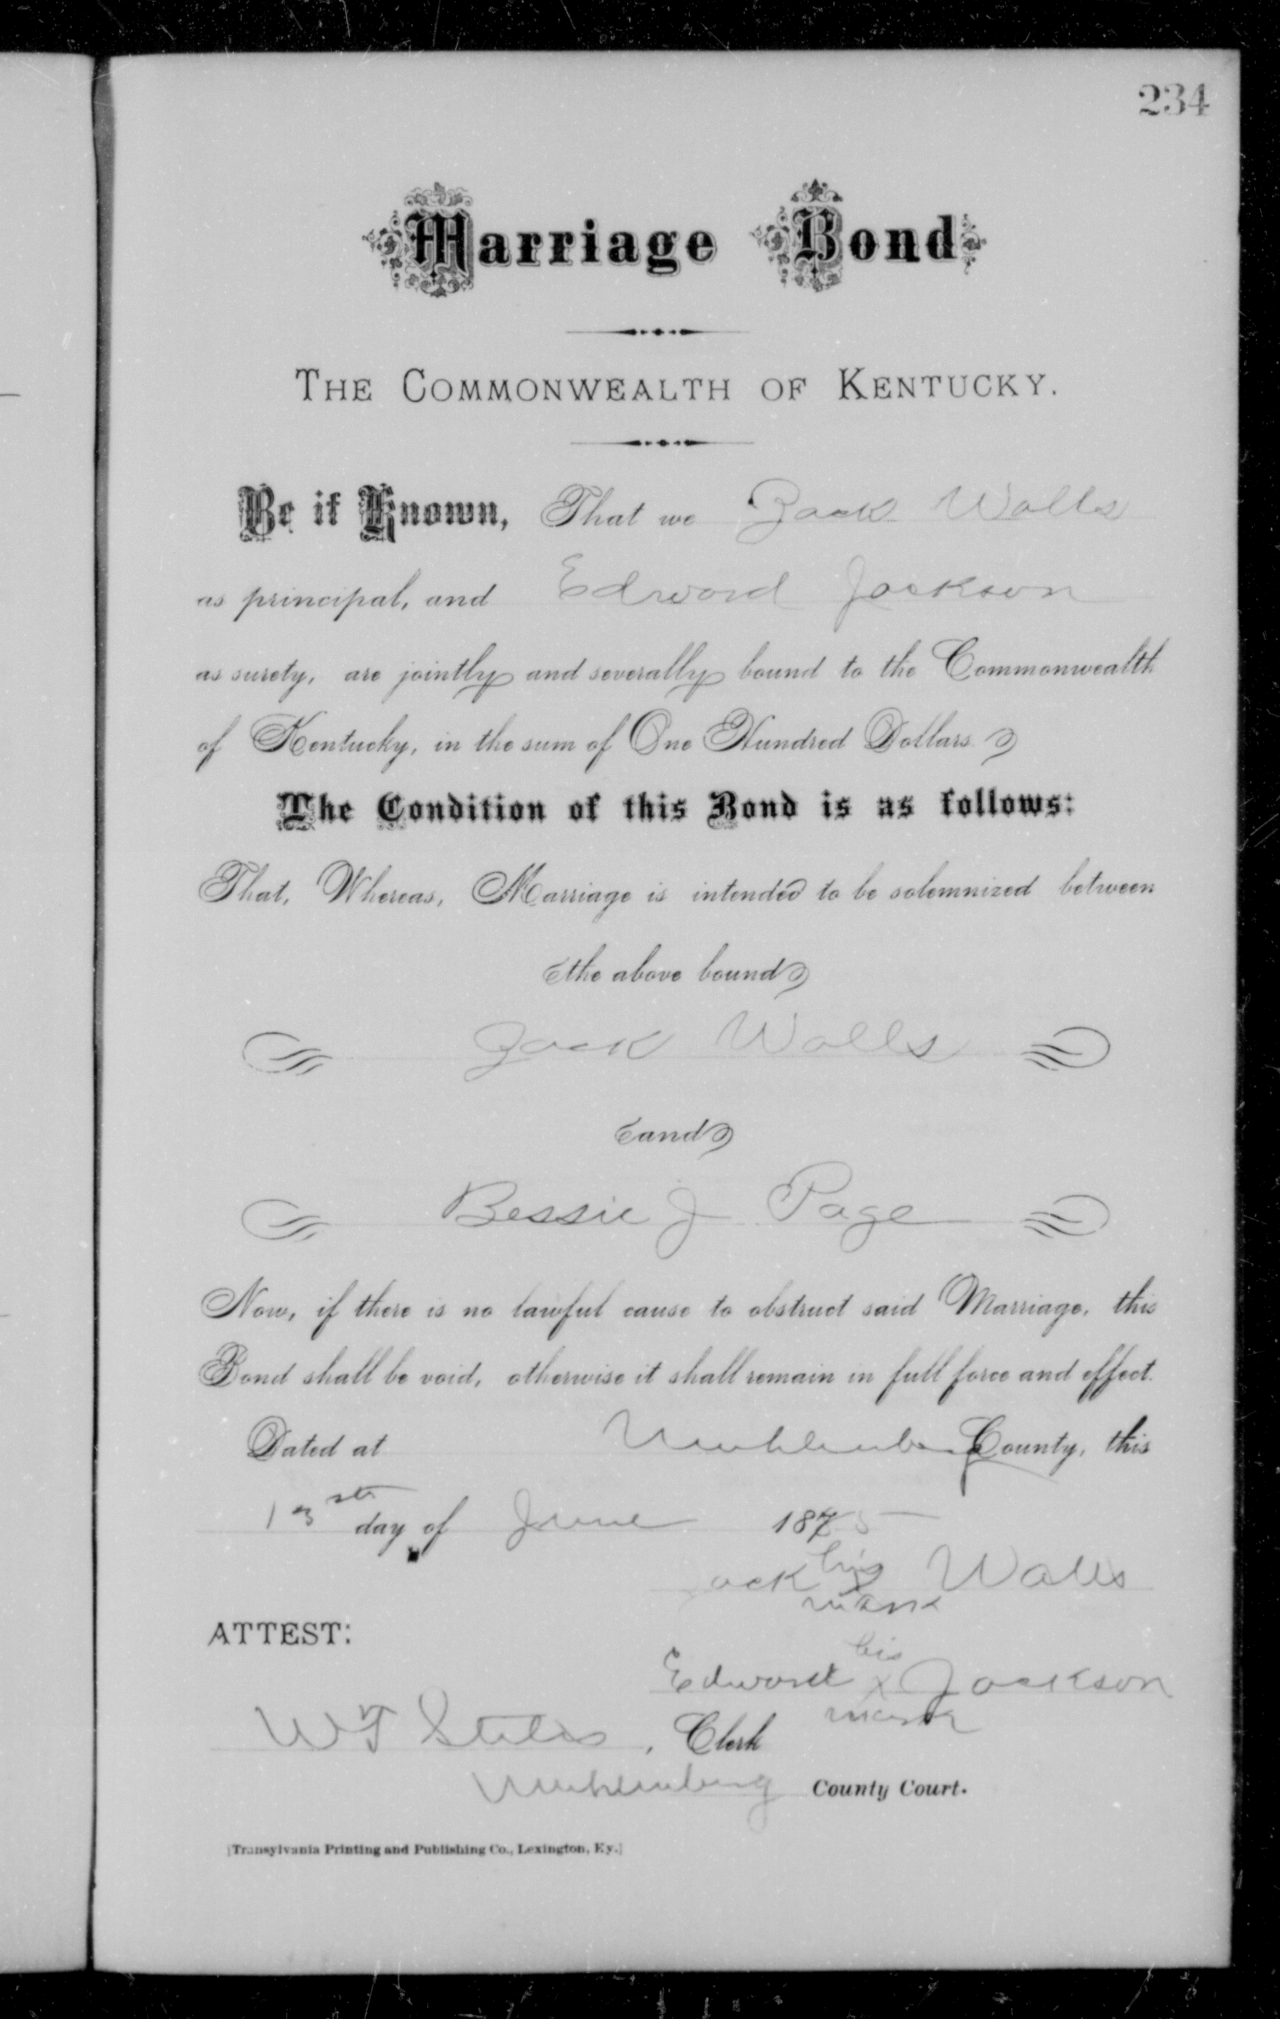 234
Marriage Bond
THE COMMONWEALTH OF KENTUCKY.
Be it Known, That we Zack Walls
as principal, and Edward Jackson
as surety, are jointly and severally bound to the Commonwealth
of Kentucky, in the sum of One Hundred Dollars.
The Condition of this Bond is as follows:
That, Whereas, Marriage is intended to be solemnized between
the above bound
Zack Walls
and
Bessie J Page
Now, if there is no lawful cause to obstruct said Marriage, this
Bond shall be void, otherwise it shall remain in full force and effect.
Dated at Muhlenberg County, this
13 day of June 187
his
ack X Walls
mark
ATTEST:
his
Edward X Jackson
mark
W T Stiles, Clerk
Muhlenberg County Court.
[Transylvania Printing and Publishing Co., Lexington, Ky.]